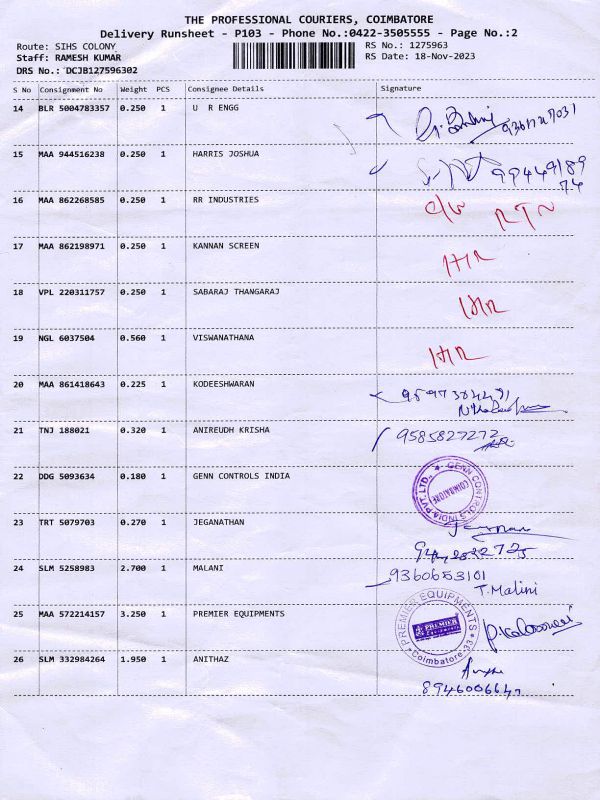 THE PROFESSIONAL COURIERS, COIMBATORE
Delivery Runsheet - P103 - Phone No.:0422-3505555 - Page No.:2
Route: SIHS COLONY
Staff: RAMESH KUMAR
DRS No.: DCJB127596302
RS No.: 1275963
RS Date: 18-Nov-2023
S No Consignment No Weight PCS Consignee Details Signature
14 BLR 5004783357 0.250 1 U R ENGG
15 MAA 944516238 0.250 1 HARRIS JOSHUA
16 MAA 862268585 0.250 1 RR INDUSTRIES RTN
17 MAA 862198971 0.250 1 KANNAN SCREEN
18 VPL 220311757 0.250 1 SABARAJ THANGARAJ
19 NGL 6037504 0.560 1 VISWANATHANA
20 MAA 861418643 0.225 1 KODEESHWARAN
21 TNJ 188021 0.320 1 ANIREUDH KRISHA 9585827272
22 DDG 5093634 0.180 1 GENN CONTROLS INDIA
GENN CONTROLS INDIA PVT. LTD.
COIMBATORE
23 TRT 5079703 0.270 1 JEGANATHAN
24 SLM 5258983 2.700 1 MALANI 9360653101
T.Malini
25 MAA 572214157 3.250 1 PREMIER EQUIPMENTS
PREMIER EQUIPMENTS
PREMIER
Coimbatore-33
26 SLM 332984264 1.950 1 ANITHAZ